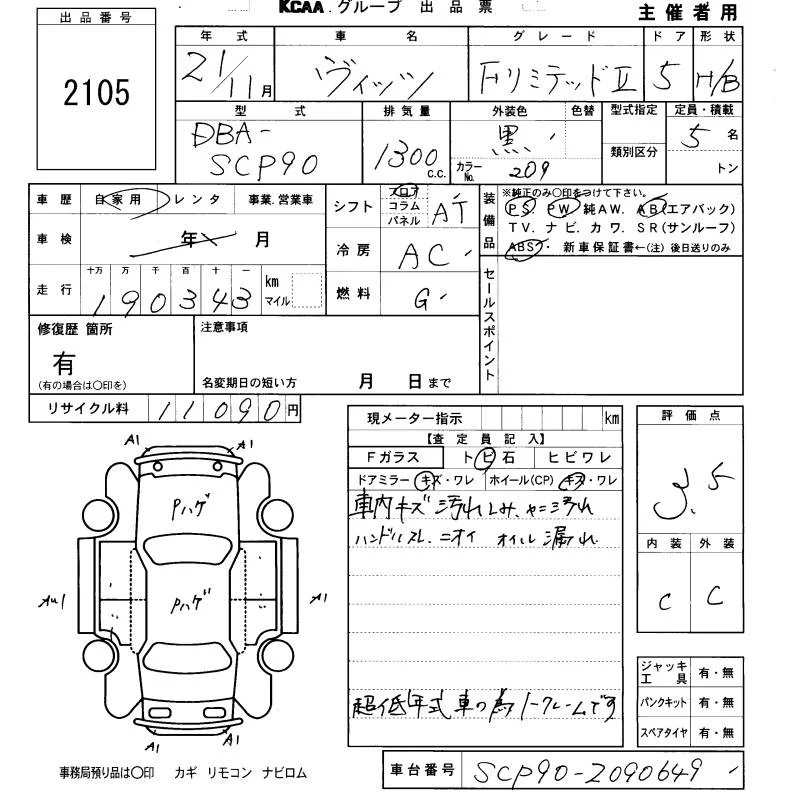 KCAA.グループ 出品票
主催者用
出品番号
2105
年式 車名 グレード ドア 形状
21/11月 ヴィッツ Fリミテッド II 5 H/B
型式 排気量 外装色 色替 型式指定 定員・積載
DBA-
SCP90
1300 C.C.
黒
カラーNo. 209
類別区分
5 名
トン
車歴 自家用 レンタ 事業.営業車
車検 年 月
走行 十万 万 千 百 十 一
190343
km
マイル
シフト フロア コラム パネル AT
冷房 AC
燃料 G
装備品
※純正のみ〇印をつけて下さい。
PS. PW. 純AW. AB(エアバック)
TV. ナビ. カワ. SR(サンルーフ)
ABS・ 新車保証書←(注) 後日送りのみ
セールスポイント
修復歴 箇所
有
(有の場合は〇印を)
注意事項
名変期日の短い方 月 日まで
リサイクル料 11090円
現メーター指示 km
【査定員記入】
Fガラス トビ石 ヒビワレ
ドアミラー キズ・ワレ ホイール(CP) キズ・ワレ
車内キズ 汚れ シミ、ヤニ汚れ
ハンドルスレ ニオイ オイル漏れ
超低年式車の為ノークレームです
評価点
3.5
内装 外装
C C
A1 A1
Pハゲ
Pハゲ
AU1 A1
A1 A1
ジャッキ工具 有・無
パンクキット 有・無
スペアタイヤ 有・無
事務局預り品は〇印 カギ リモコン ナビロム
車台番号 SCP90-2090649